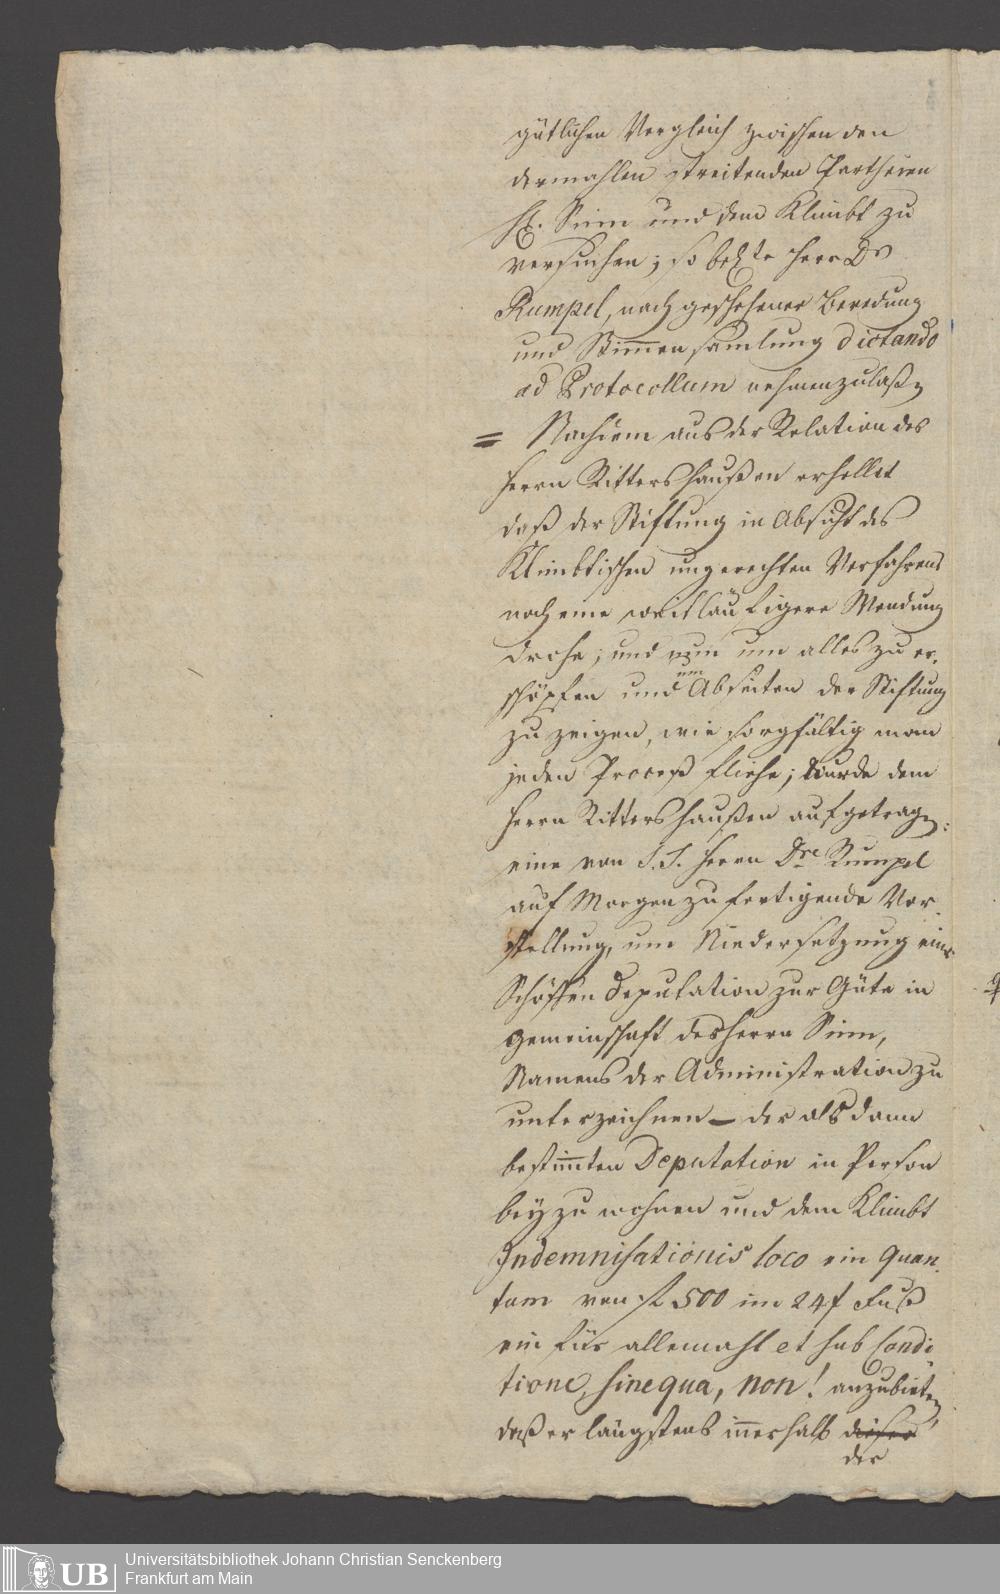 gütlichen Vergleich zwischen den
dermahlen streitenden Partheien
H. Sinn und dem Klimbt zu
versuchen; so bestte Herr Dr
Rumpel, nach geschehener Beredung
und Stimmensamlung dictando
ad Protocollum nehmen zu laßen
= Nachdem aus der Relation des
Herrn Rittershaußen erhellet
daß der Stiftung in Absicht des
Klimbtischen ungerechten Verfahrens
noch eine weitläufigere Wendung
drohe; und nun um alles zu er-
schöpfen und um Abseiten der Stiftung
zu zeigen, wie sorgfältig man
jeden Proceß fliehe; wurde dem
Herrn Rittershaußen aufgetragen:
eine von S.T. Herrn Dre Rumpel
auf Morgen zu fertigende Vor-
stellung, um Niedersetzung einer
Schöffen Deputation zur Güte in
Gemeinschaft des Herrn Sinn,
Namens der Administration zu
unterzeichnen – der als dann
bestimmten Deputation in Person
beyzuwohnen und dem Klimbt
Indemnisationis loco ein Quan-
tum von f 500 im 24 f Fuß
ein für allemahl et sub Condi-
tione, sine qua, non! anzubieten,
daß er längstens innerhalb dieser
der
Universitätsbibliothek Johann Christian Senckenberg
UB Frankfurt am Main